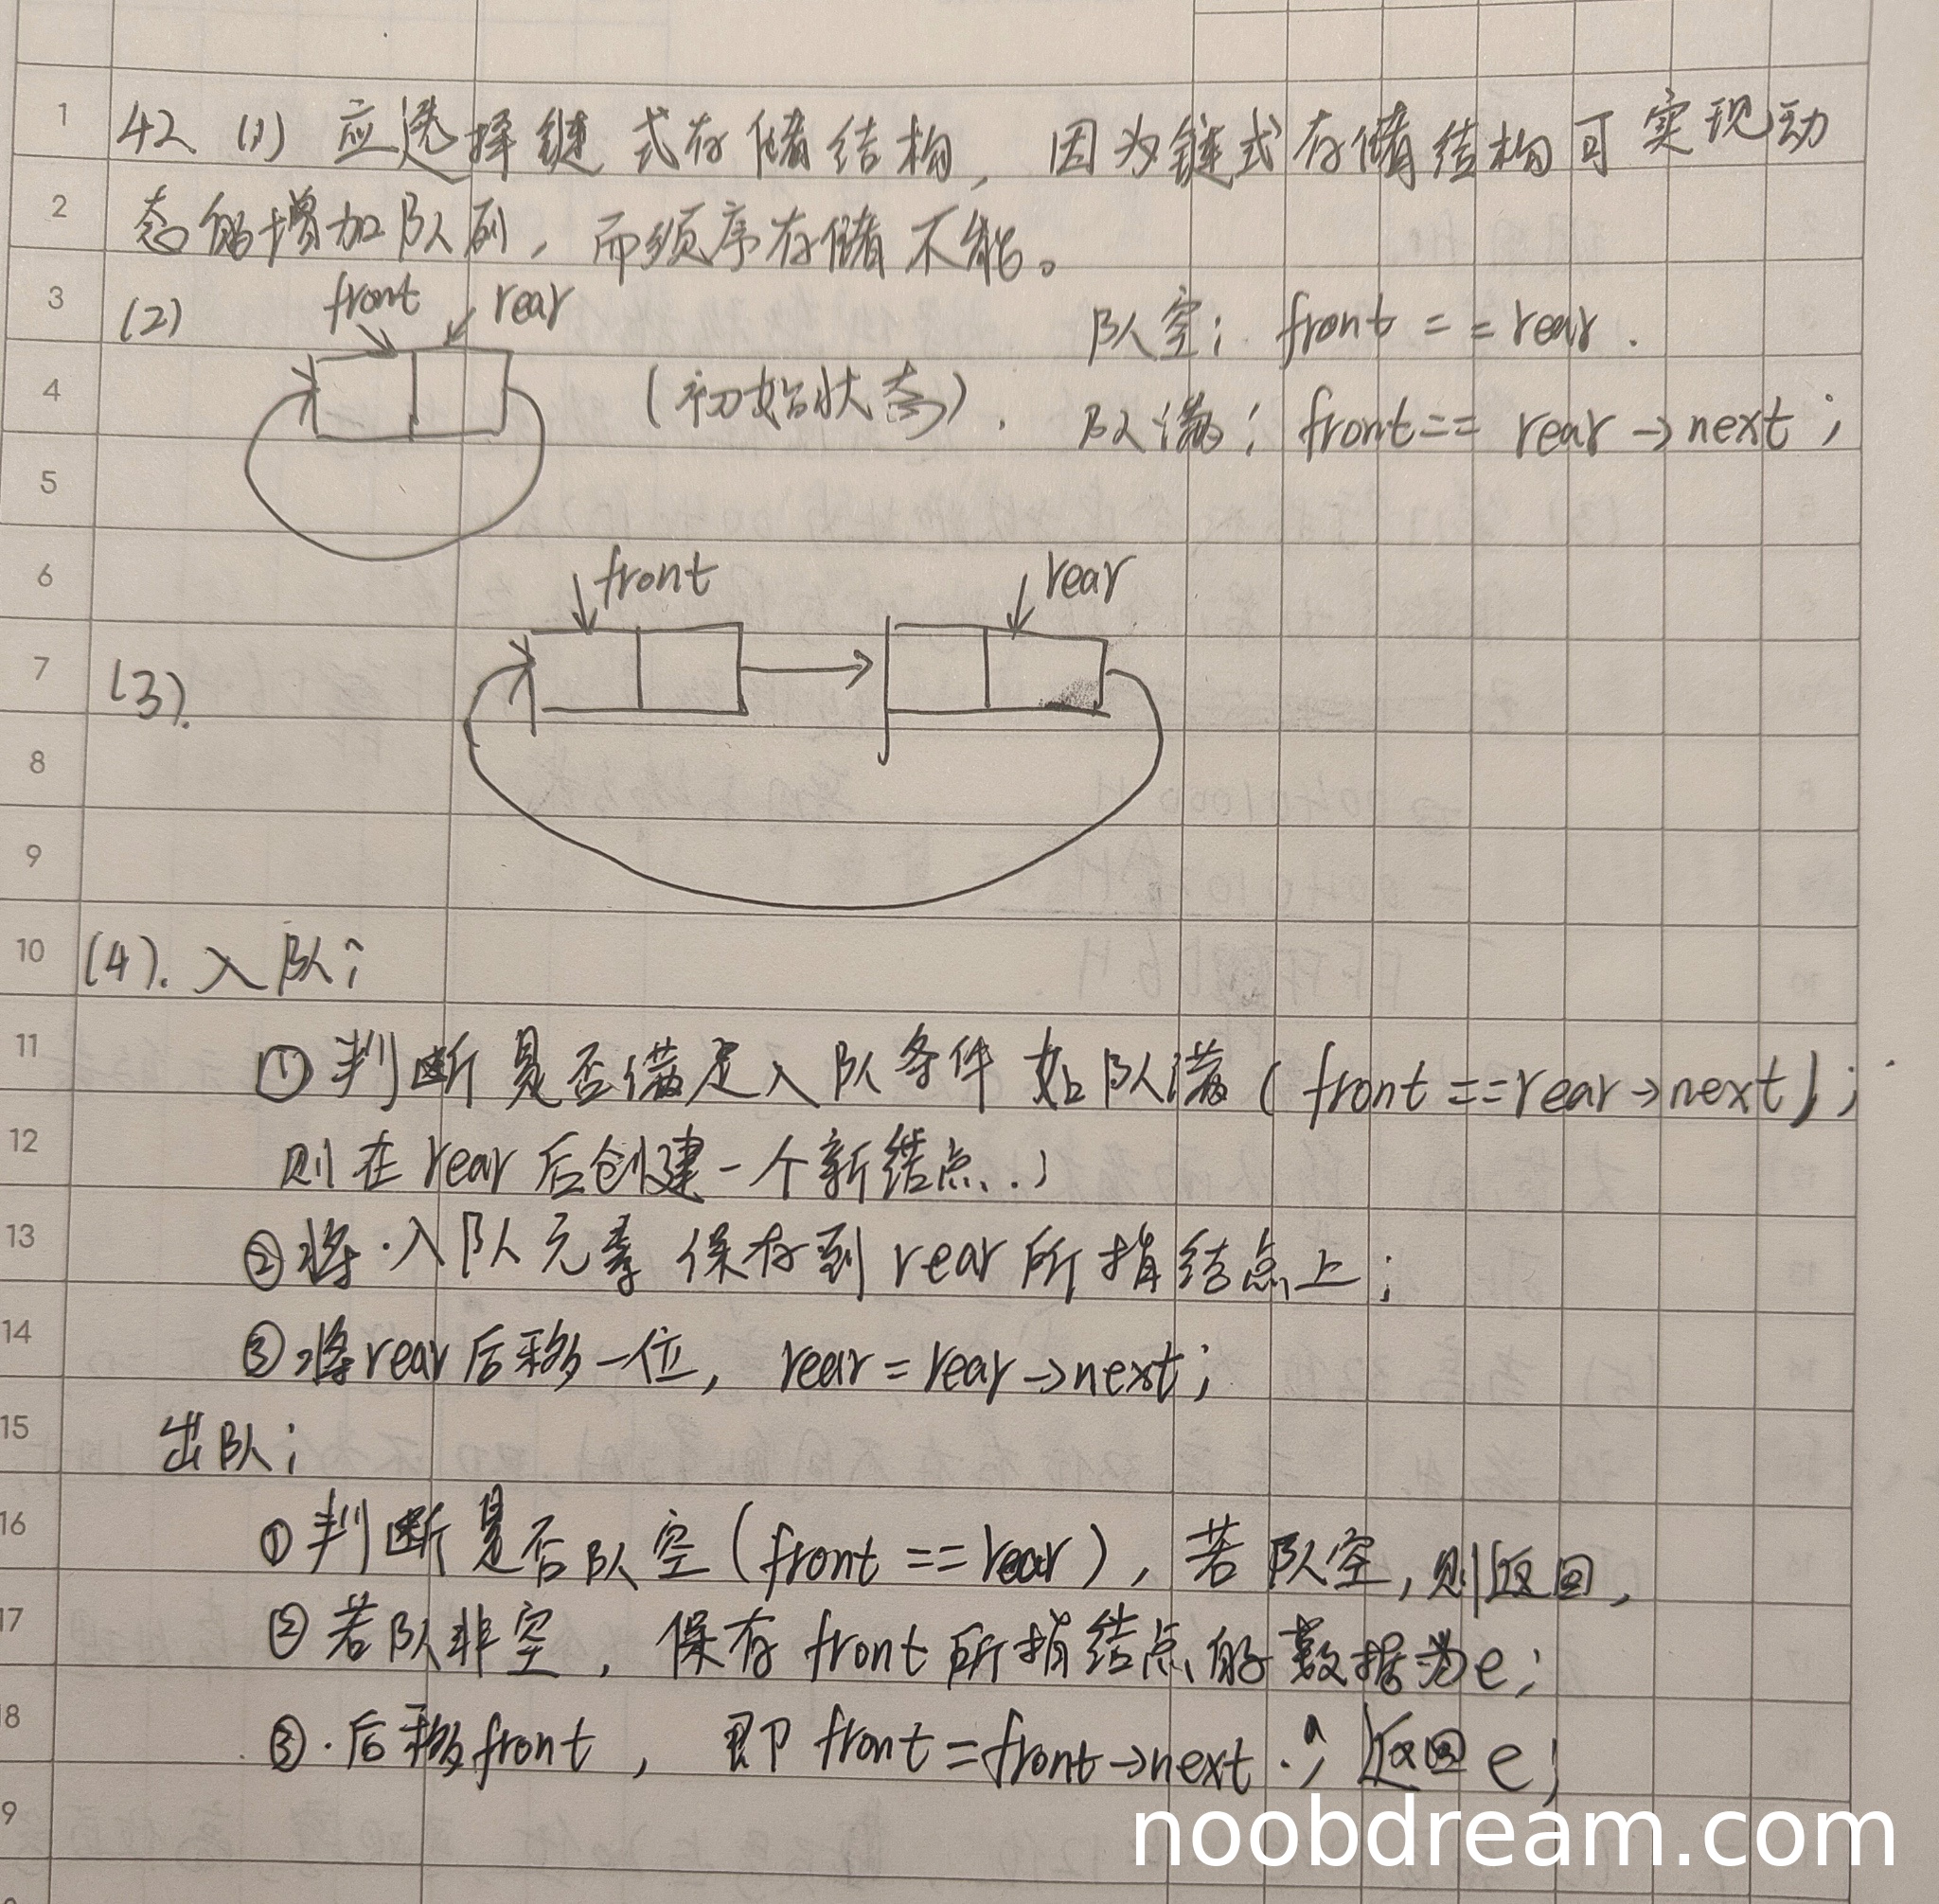 42 (1) 应选择链式存储结构，因为链式存储结构可实现动
态的增加队列，而须序存储不能。
(2)
front rear
(初始状态).
队空; front == rear.
队满; front == rear→next;
front rear
(3).
(4). 入队;
①判断是否满足入队条件 如队满 (front ==rear→next);
则在rear后创建一个新结点.;
②将.入队元素保存到rear所指结点上;
③将rear后移一位, rear = rear→next;
出队;
①判断是否队空(front == rear), 若队空, 则返回,
②若队非空, 保存front所指结点的数据为e;
③.后移front, 即 front = front→next.; 返回 e;
1
2
3
4
5
6
7
8
9
10
11
12
13
14
15
16
17
8
9
noobdream.com